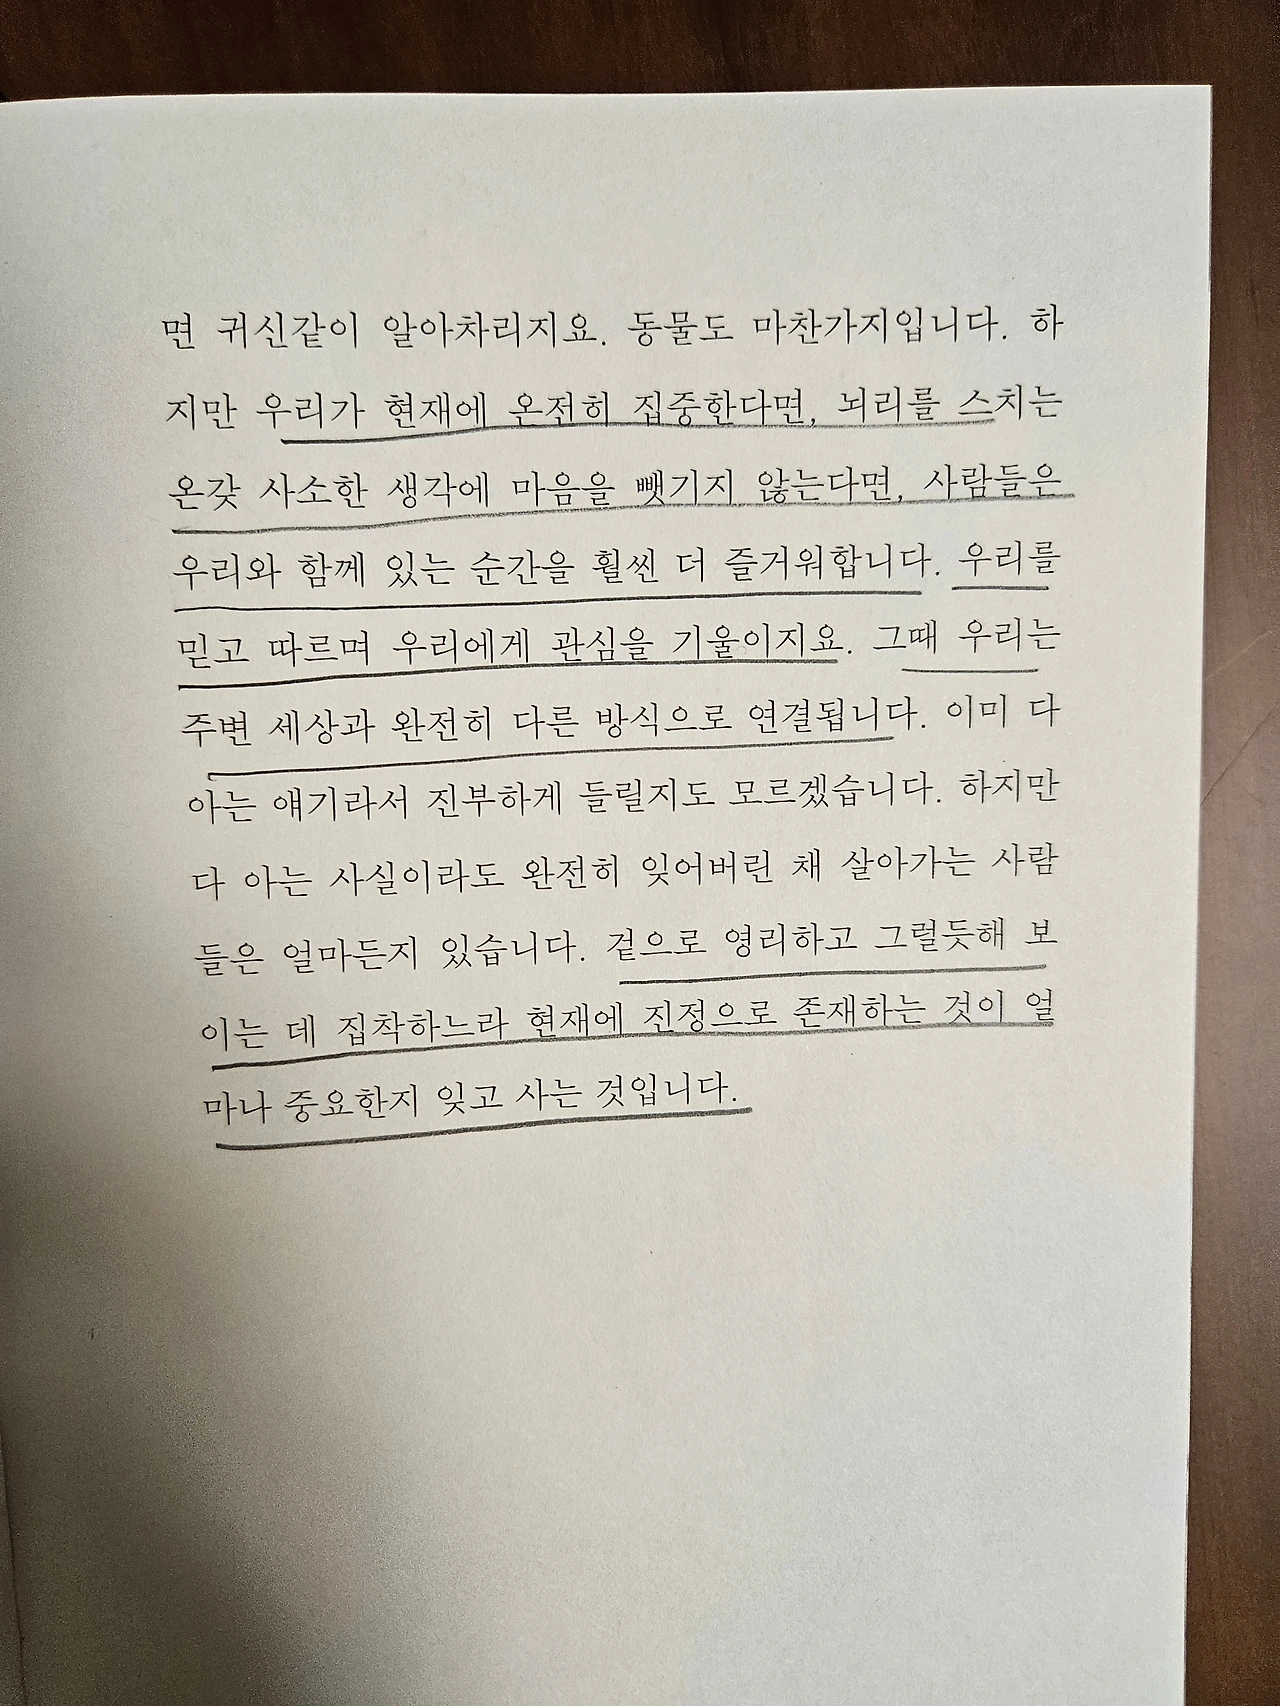 면 귀신같이 알아차리지요. 동물도 마찬가지입니다. 하
지만 우리가 현재에 온전히 집중한다면, 뇌리를 스치는
온갖 사소한 생각에 마음을 뺏기지 않는다면, 사람들은
우리와 함께 있는 순간을 훨씬 더 즐거워합니다. 우리를
믿고 따르며 우리에게 관심을 기울이지요. 그때 우리는
주변 세상과 완전히 다른 방식으로 연결됩니다. 이미 다
아는 얘기라서 진부하게 들릴지도 모르겠습니다. 하지만
다 아는 사실이라도 완전히 잊어버린 채 살아가는 사람
들은 얼마든지 있습니다. 겉으로 영리하고 그럴듯해 보
이는 데 집착하느라 현재에 진정으로 존재하는 것이 얼
마나 중요한지 잊고 사는 것입니다.